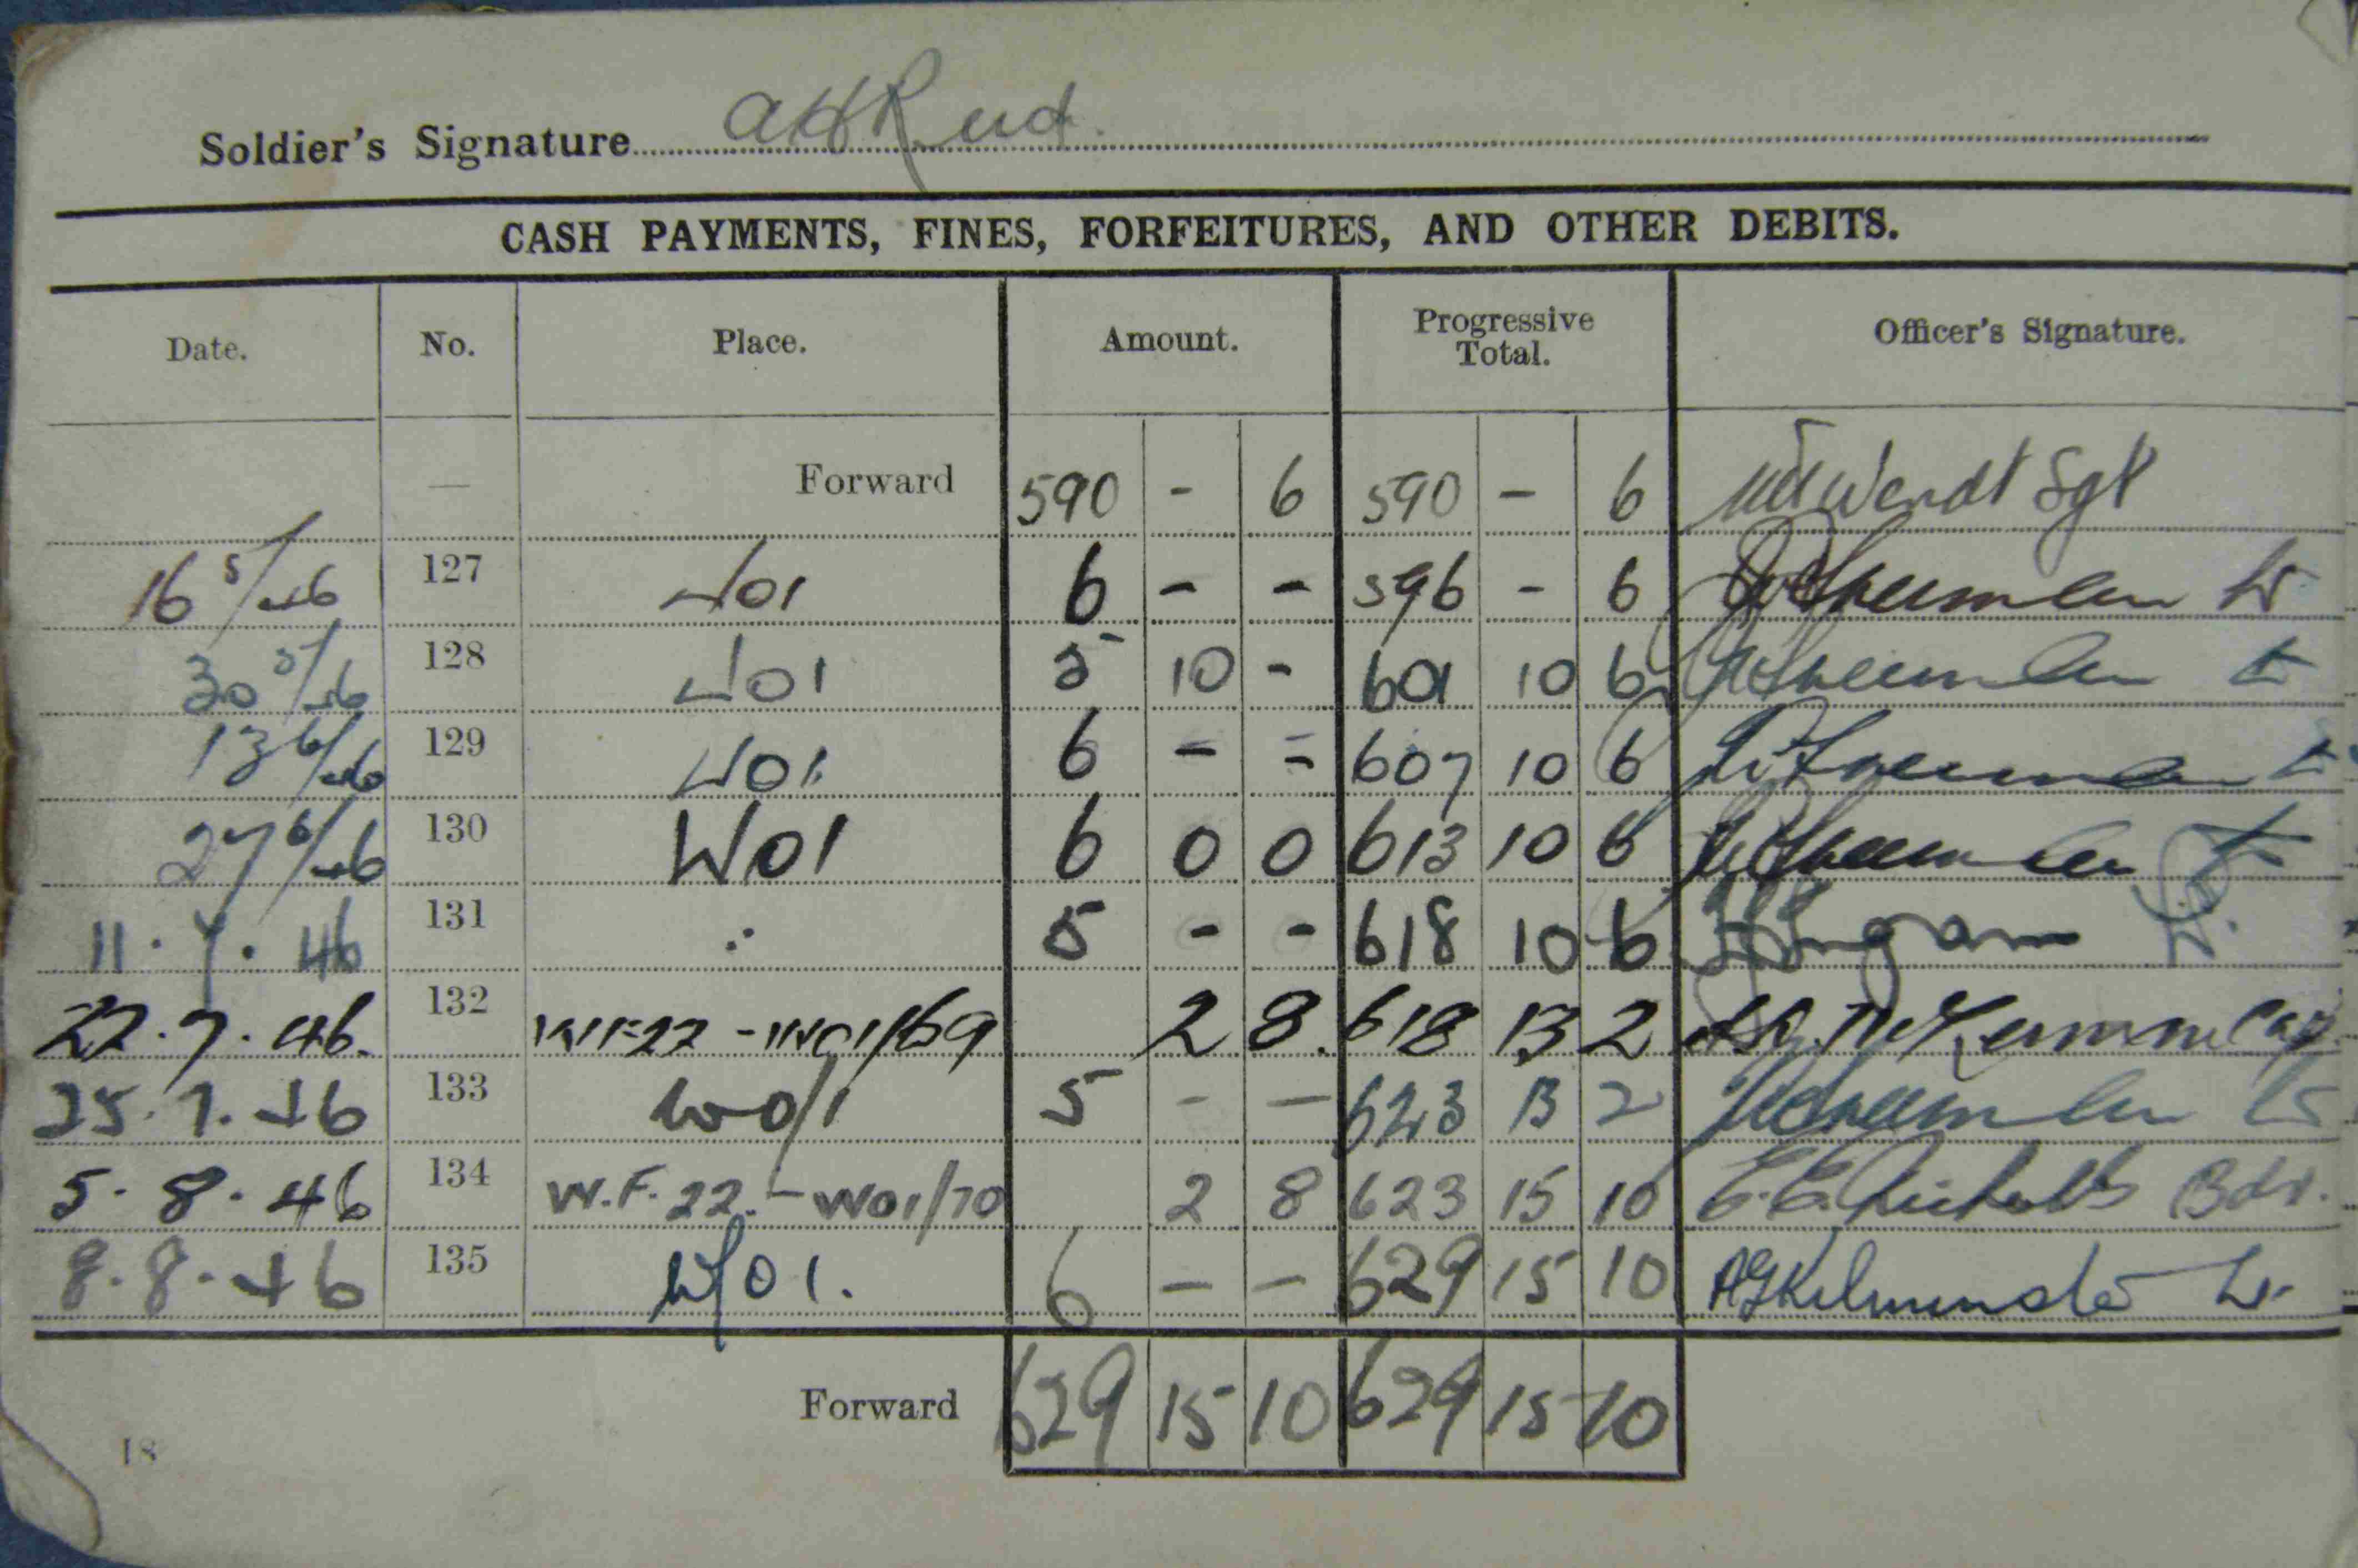 Soldier's Signature
CASH PAYMENTS, FINES, FORFEITURES, AND OTHER DEBITS.
Date. No. Place. Amount. Progressive Total. Officer's Signature.
— Forward 590 - 6 590 - 6 Wendt Sgt
16 5/46 127 W01 6 - - 596 - 6 Lt
30 5/46 128 W01 5 10 - 601 10 6 Lt
13 6/46 129 W01 6 - - 607 10 6 Lt
27 6/46 130 W01 6 0 0 613 10 6 Lt
11.7.46 131 " 5 - - 618 10 6 Lt.
22.7.46. 132 WF22 - W01/69 2 8. 618 13 2
25.7.46 133 W0/1 5 - — 623 13 2 Lt
5.8.46 134 W.F.22.-W01/70 2 8 623 15 10 Bdr.
8.8.46 135 W/01. 6 — — 629 15 10 Lt.
Forward 629 15 10 629 15 10
18